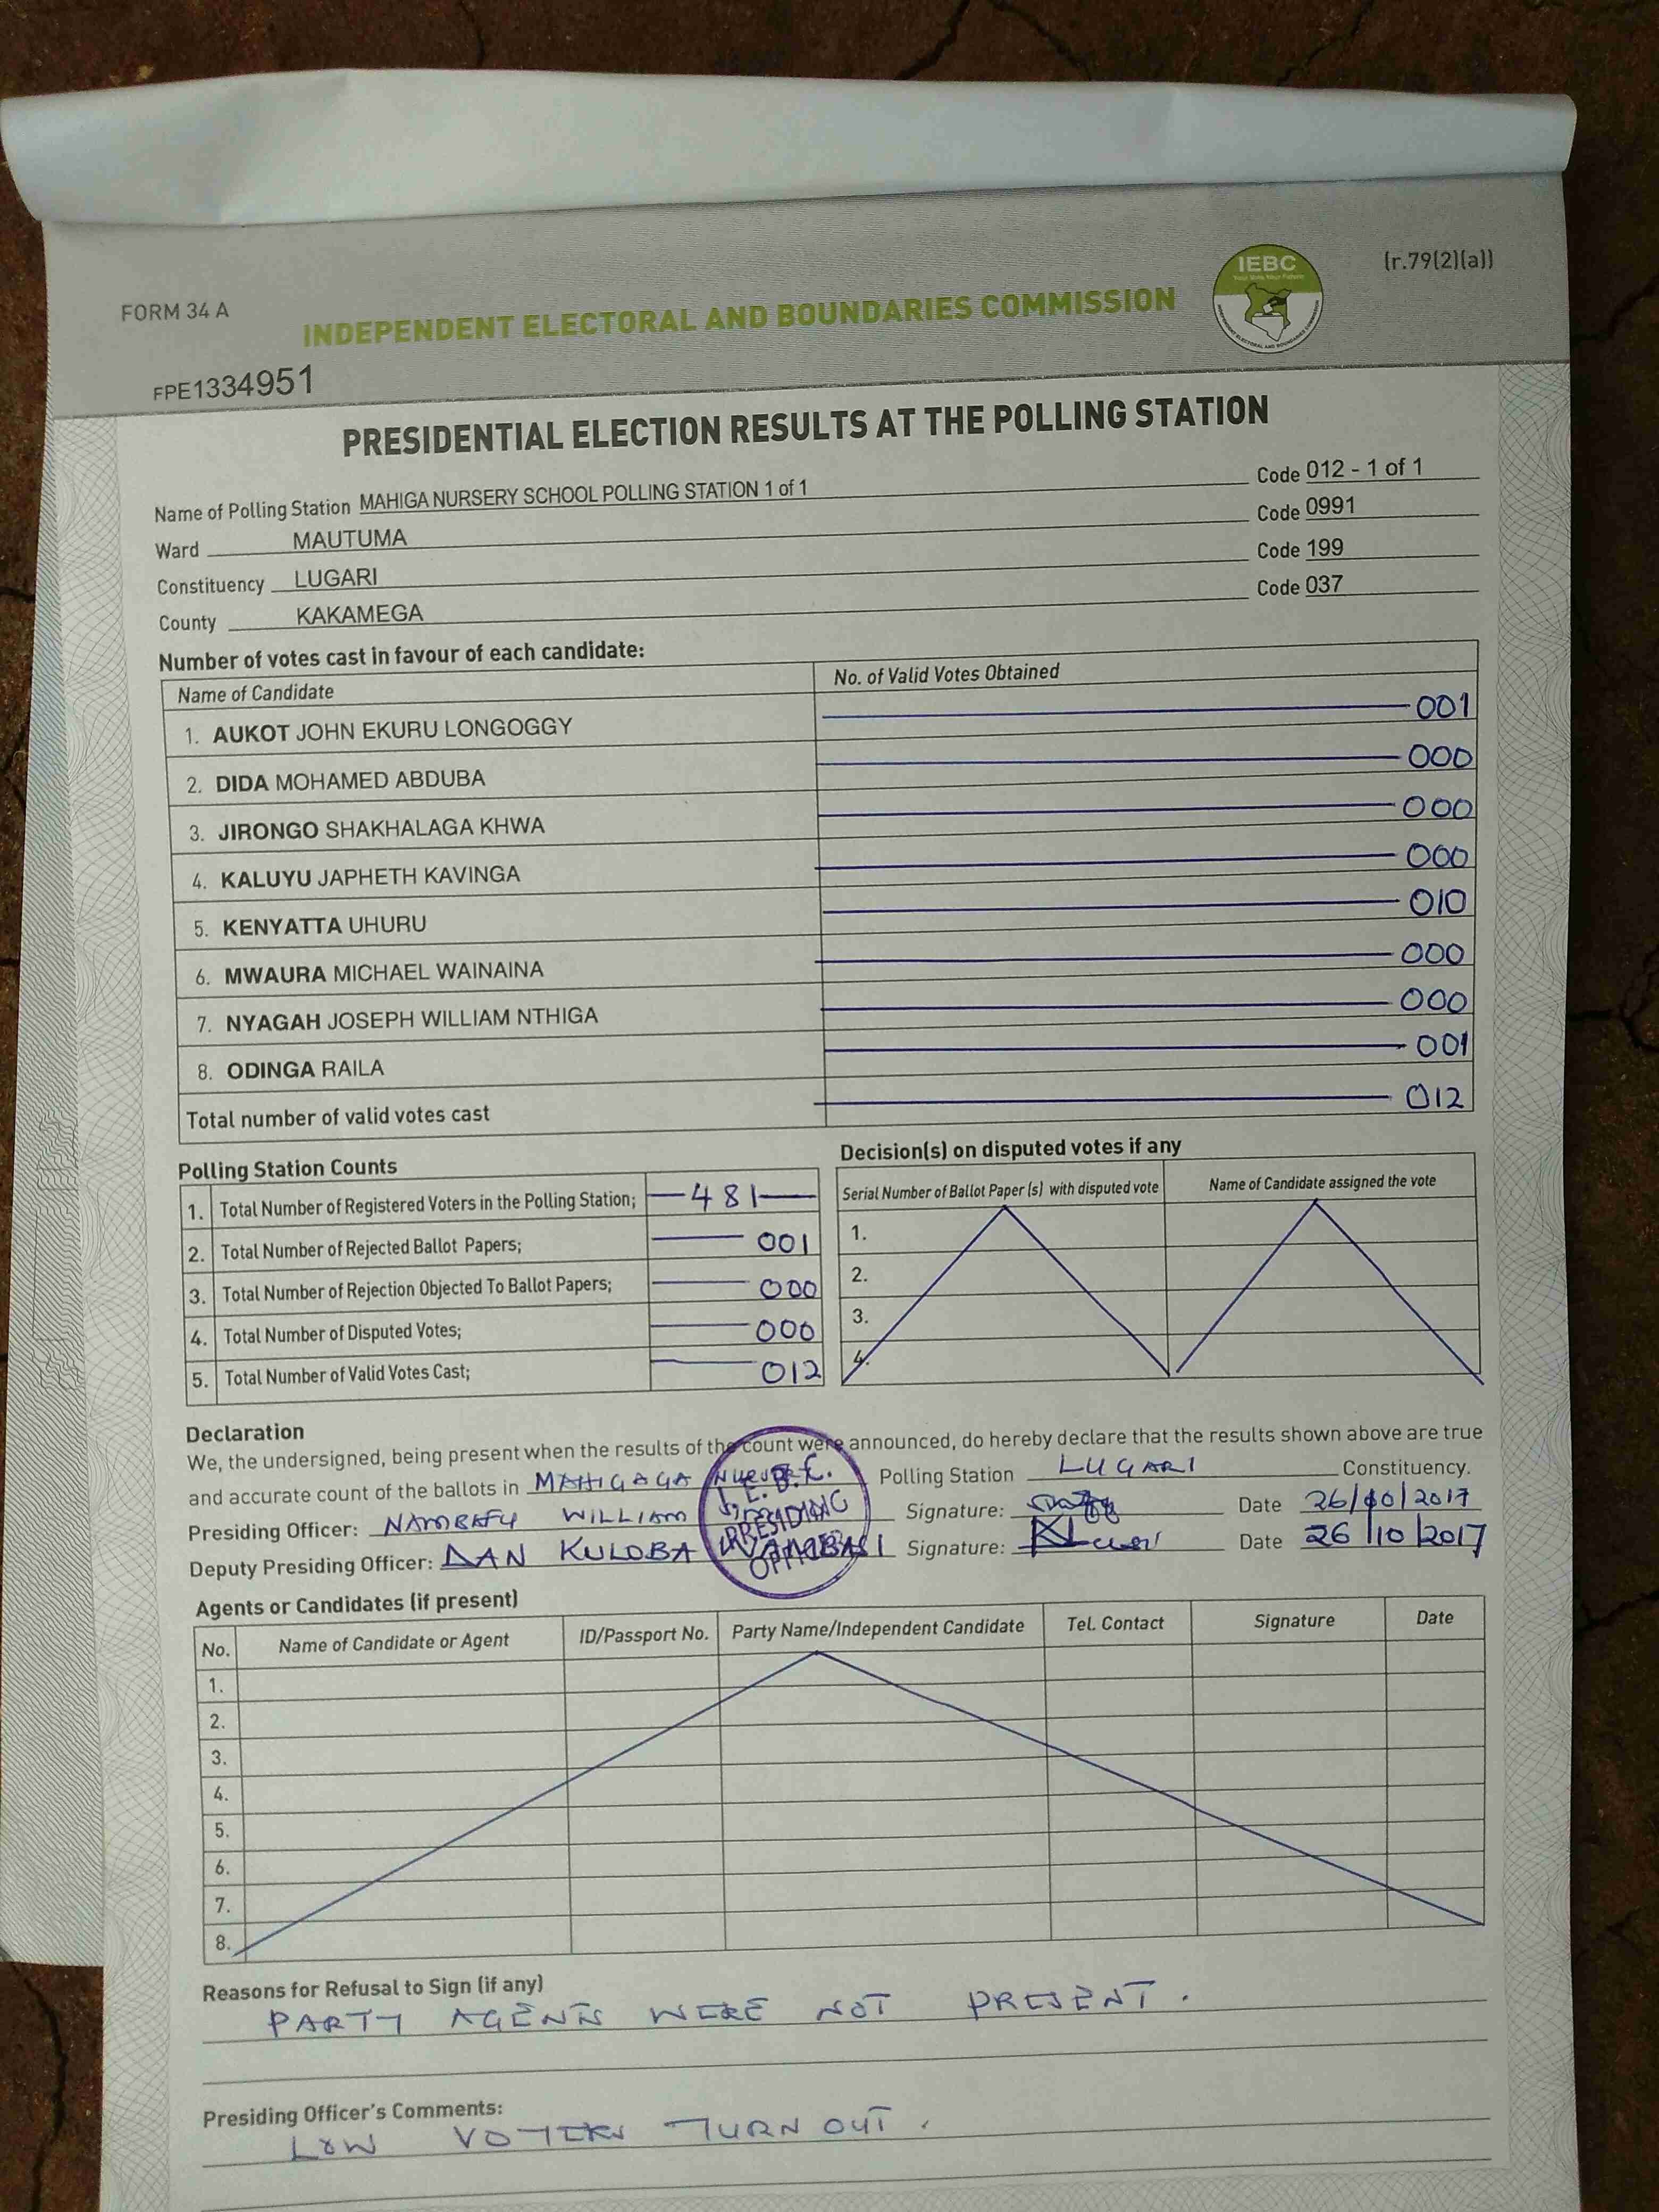 (r.79(2)(a))
FORM 34 A
INDEPENDENT ELECTORAL AND BOUNDARIES COMMISSION
IEBC
FPE1334951
PRESIDENTIAL ELECTION RESULTS AT THE POLLING STATION
Name of Polling Station MAHIGA NURSERY SCHOOL POLLING STATION 1 of 1 Code 012 - 1 of 1
Ward MAUTUMA Code 0991
Constituency LUGARI Code 199
County KAKAMEGA Code 037
Number of votes cast in favour of each candidate:
Name of Candidate No. of Valid Votes Obtained
1. AUKOT JOHN EKURU LONGOGGY 001
2. DIDA MOHAMED ABDUBA 000
3. JIRONGO SHAKHALAGA KHWA 000
4. KALUYU JAPHETH KAVINGA 000
5. KENYATTA UHURU 010
6. MWAURA MICHAEL WAINAINA 000
7. NYAGAH JOSEPH WILLIAM NTHIGA 000
8. ODINGA RAILA 001
Total number of valid votes cast 012
Polling Station Counts
1. Total Number of Registered Voters in the Polling Station; 481
2. Total Number of Rejected Ballot Papers; 001
3. Total Number of Rejection Objected To Ballot Papers; 000
4. Total Number of Disputed Votes; 000
5. Total Number of Valid Votes Cast; 012
Decision(s) on disputed votes if any
Serial Number of Ballot Paper (s) with disputed vote Name of Candidate assigned the vote
1.
2.
3.
4.
Declaration
We, the undersigned, being present when the results of the count were announced, do hereby declare that the results shown above are true
and accurate count of the ballots in MAHIGAGA Polling Station LUGARI Constituency.
Presiding Officer: WILLIAM Signature: Date 26/10/2017
Deputy Presiding Officer: DAN KULOBA Signature: Date 26/10/2017
I.E.B.C.
PRESIDING
OFFICER
Agents or Candidates (if present)
No. Name of Candidate or Agent ID/Passport No. Party Name/Independent Candidate Tel. Contact Signature Date
1.
2.
3.
4.
5.
6.
7.
8.
Reasons for Refusal to Sign (if any)
PARTY AGENTS WERE NOT PRESENT.
Presiding Officer's Comments:
LOW VOTERS TURN OUT.